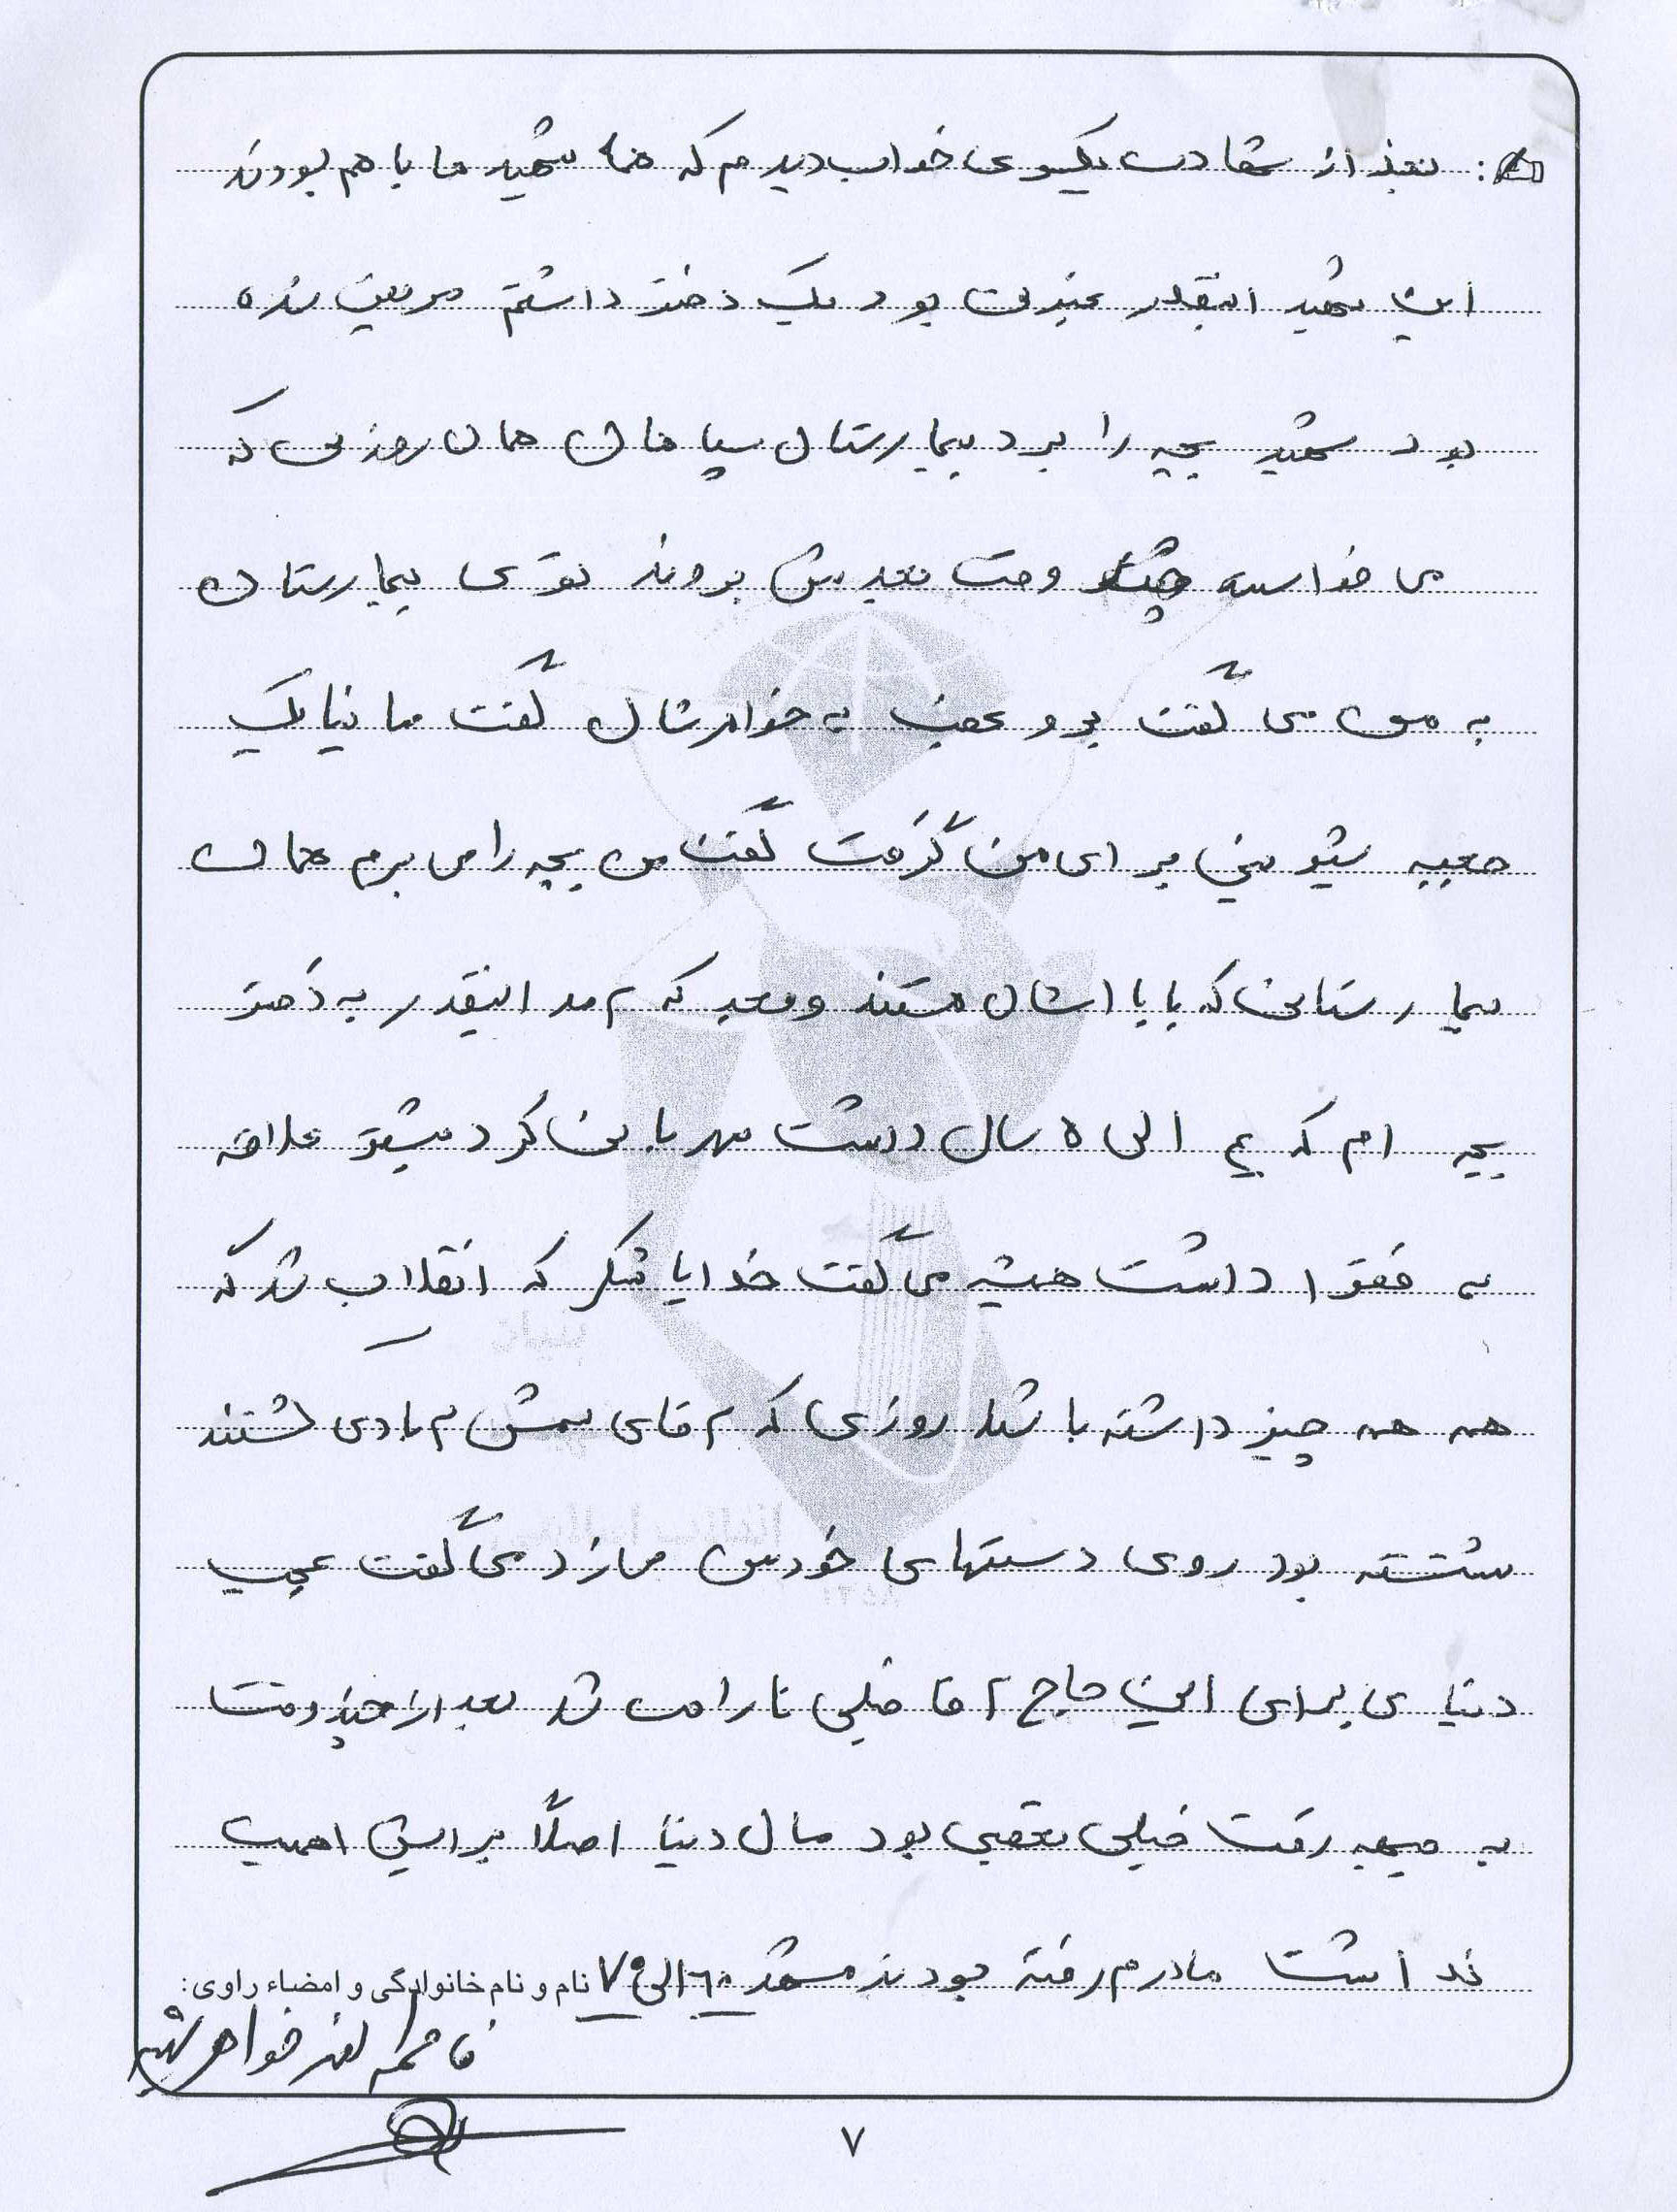 بعد از شهادت یکسری خواب دیدم که همه شهید ما با هم بودند
این شهید اینقدر عزیز بود یک دختر داشتم مریض شده
بود شهید بچه را برد بیمارستان سپاهان همان روزی که
می خواست وقت بعدش بروند توی بیمارستان
به من می گفت برو عقب به خواهرشان گفت ما نیا یک
جعبه شیرینی برای من گرفت گفت من بچه را می برم همان
بیمارستانی که بابا اشان هستند و بعد که آمد اینقدر به دختر
بچه ام که ۴ الی ۵ سال داشت مهربانی کرد بیشتر علاقه
به فقرا داشت همیشه می گفت خدایا شکر که انقلاب شد که
همه همه چیز داشته باشند روزی که آقای شمس آبادی کشتند
نشسته بود روی دستهای خودش می زد می گفت عجب
دنیا ی برای این حاج آقا خیلی ناراحت شد بعد از چند وقت
به جبهه رفت خیلی بود مال دنیا اصلاً برایش اهمیت
نداشت مادرم رفته بودند مشهد ۶۰ الی ۷۰ نام و نام خانوادگی و امضاء راوی:
فاطمه خواهر شهید
۷